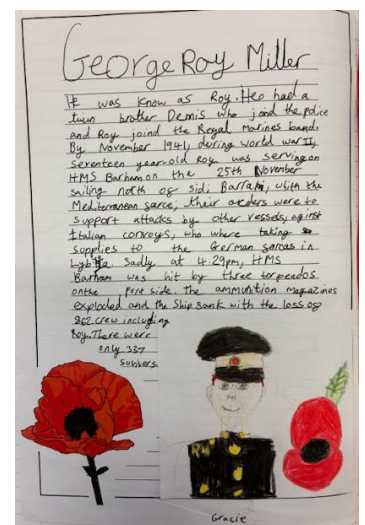 George Roy Miller
He was know as Roy. Heo had a
twin brother Dennis who joind the police
and Roy joind the Royal Marines band.
By November 1941, during World War II,
seventeen year-old Roy was serving on
HMS Barham on the 25th November
sailing north of Sidi Barrani, with the
Mediterranean force; their orders were to
support attacks by other vessels, against
Italian convoys, who where taking
supplies to the German forces in
Lybia. Sadly at 4.29pm, HMS
Barham was hit by three torpedos
on the port side. The ammunition magazines
exploded and the Ship sank with the loss of
862 crew including
Roy. There were
only 337
suvivors.
Gracie